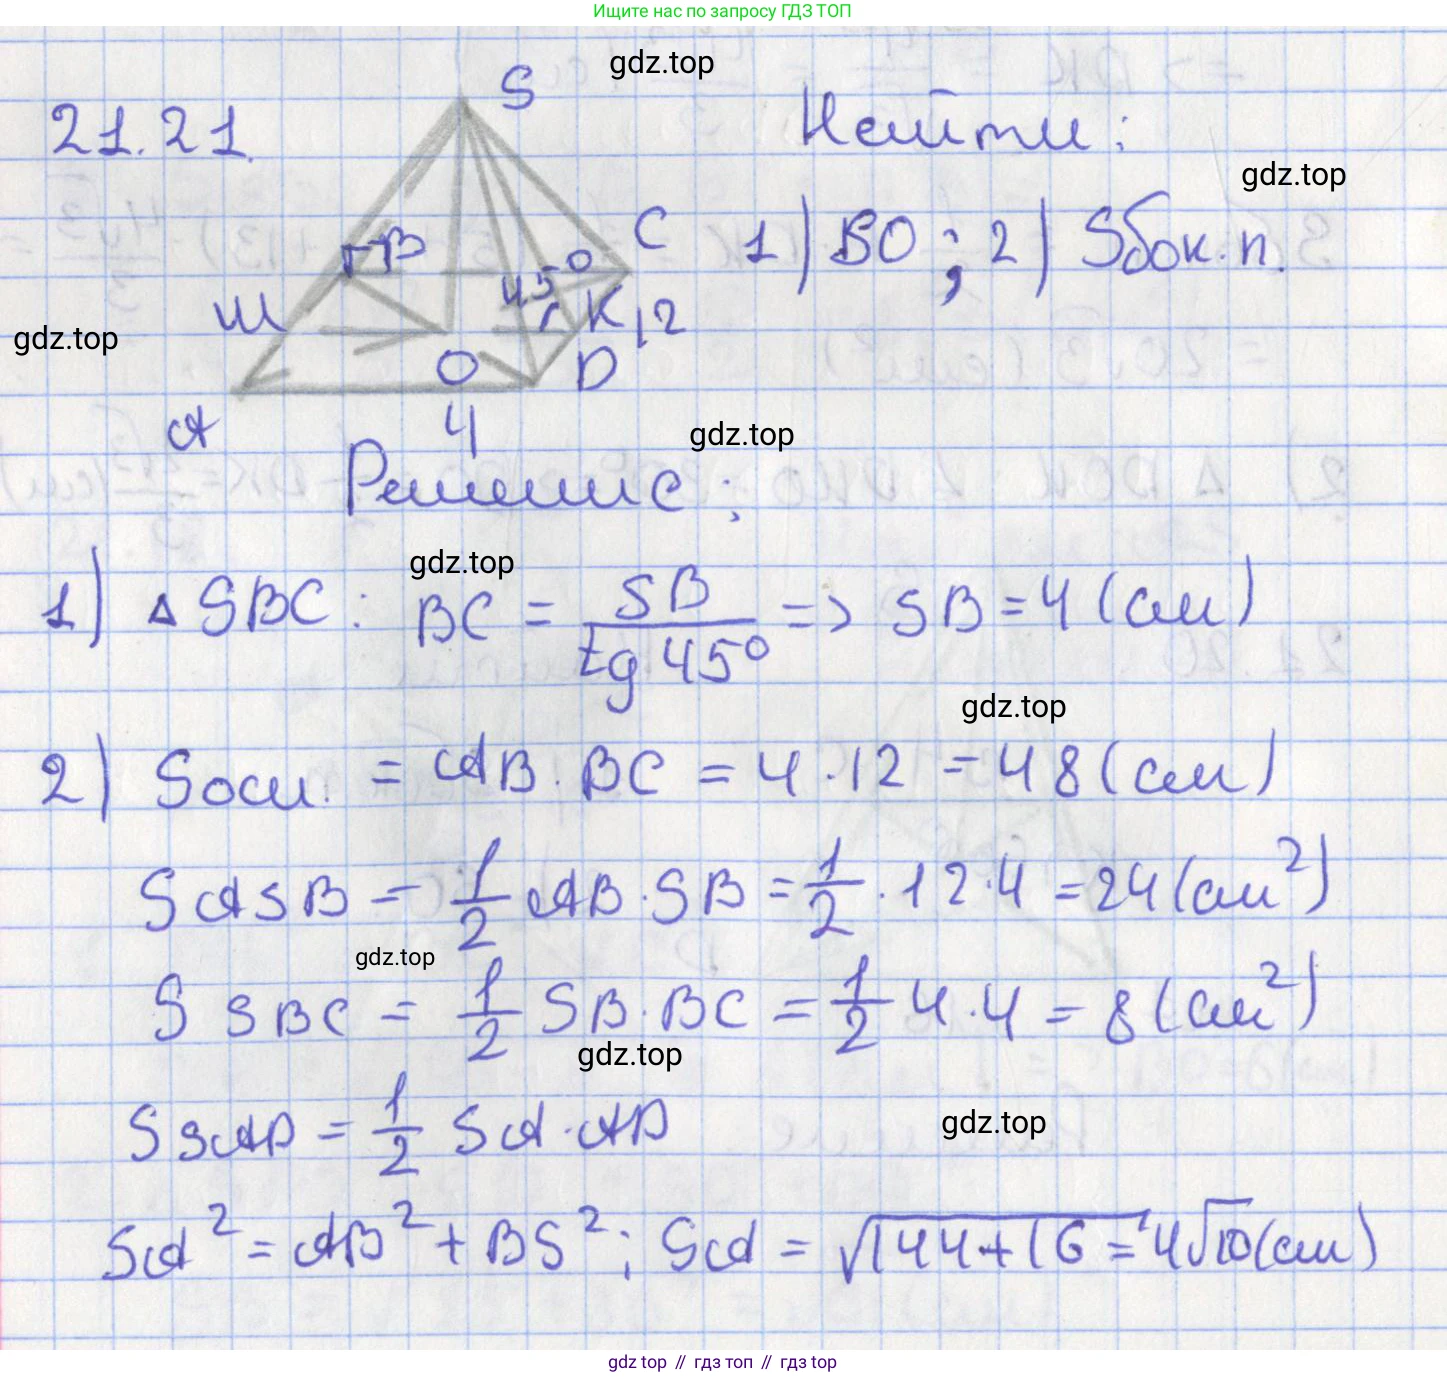 Ищите нас по запросу ГДЗ ТОП
gdz.top
21.21.
S
Найти:
gdz.top
B
C
1) BO; 2) Sбок.п.
45°
M
K
12
gdz.top
O
D
A
4
gdz.top
Решение:
gdz.top
1) ΔSBC: BC = SB / tg 45° => SB = 4 (см)
gdz.top
2) Sосн. = AB · BC = 4 · 12 = 48 (см)
S ASB = 1/2 AB · SB = 1/2 · 12 · 4 = 24 (см²)
gdz.top
S SBC = 1/2 SB · BC = 1/2 4 · 4 = 8 (см²)
gdz.top
S SAD = 1/2 SA · AD
gdz.top
SA² = AB² + BS²; SA = √144+16 = 4√10 (см)
gdz top // гдз топ // гдз top